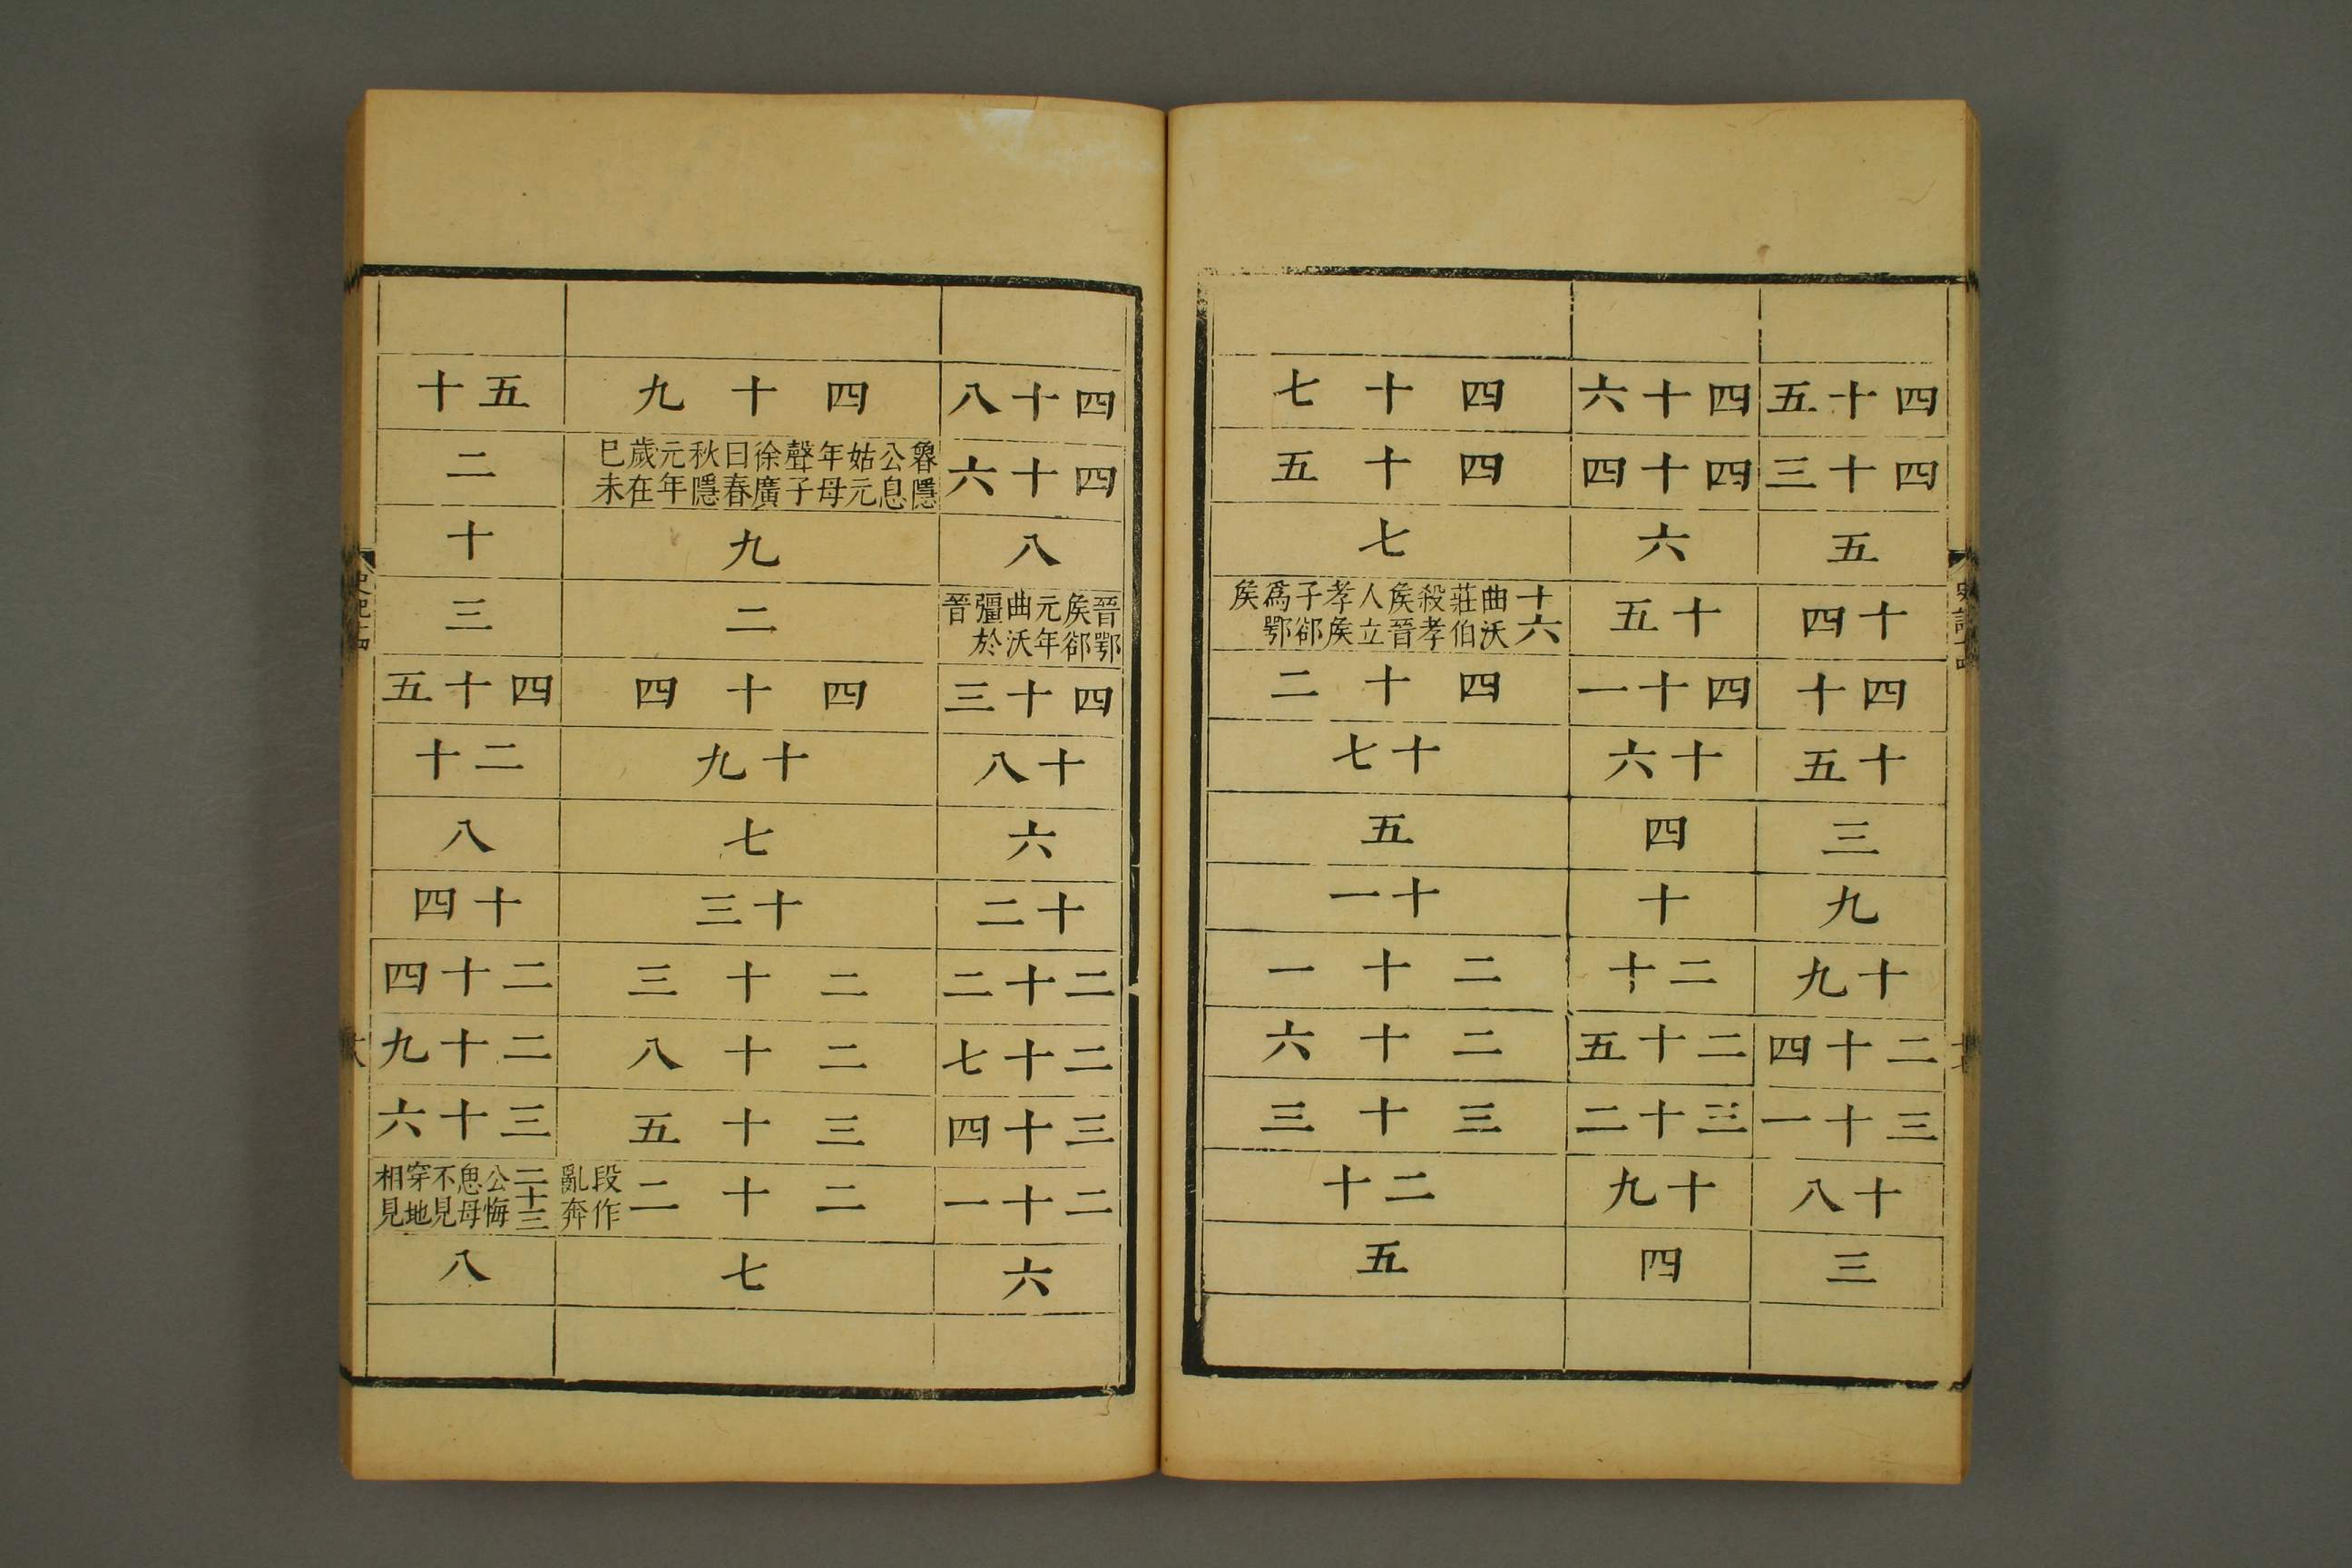 四十五
四十三
五
十四
四十
十五
三
九
十九
二十四
三十一
十八
三
四十六
四十四
六
十五
四十一
十六
四
十
二十
二十五
三十二
十九
四
四十七
四十五
七
十六曲沃莊伯殺孝矦晉人立孝矦子郤爲鄂矦
四十二
十七
五
十一
二十一
二十六
三十三
二十
五
四十八
四十六
八
晉鄂矦郤元年曲沃彊於晉
四十三
十八
六
十二
二十二
二十七
三十四
二十一
六
四十九
魯隱公息姑元年母聲子徐廣曰春秋隱元年歲在巳未
九
二
四十四
十九
七
十三
二十三
二十八
三十五
二十二段作亂奔
七
五十
二
十
三
四十五
二十
八
十四
二十四
二十九
三十六
二十三公悔思母不見穿地相見
八